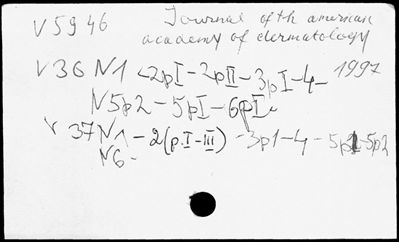 V5946 Journal of th american
academy of dermatology
V 36 N1 -2pI-2pII-3pI-4- 1997
N5p2-5pI-6pI
V 37 N1-2(p.I-III)-3p1-4-5p1-5p2
N6-